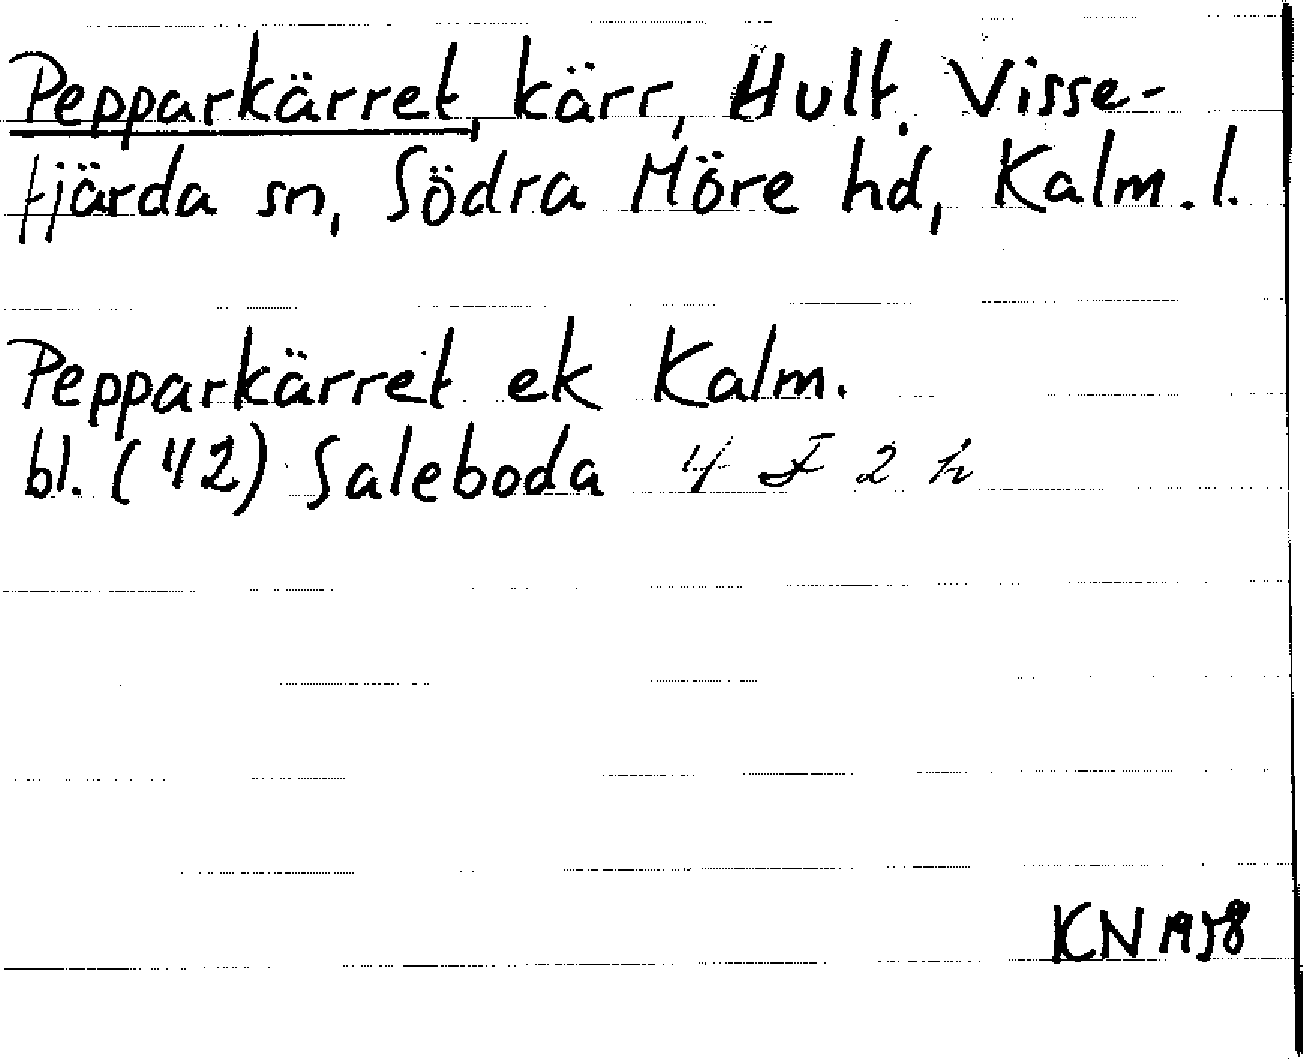 Pepparkärret, kärr, Hult, Visse-
fjärda sn, Södra Möre hd, Kalm. l.
Pepparkärret ek Kalm.
bl. (42) Saleboda 4 F 2 h
KN 1958